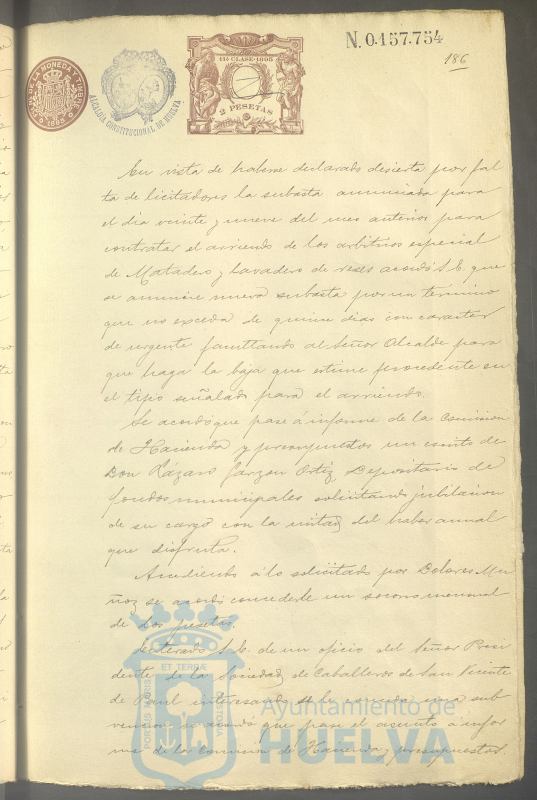 N. 0.157.754
186
11ª CLASE 1895
2 PESETAS
ALCALDIA CONSTITUCIONAL DE HUELVA
En vista de haberse declarado desierta por fal
ta de licitadores la subasta anunciada para
el dia veinte y nueve del mes anterior para
contratar el arriendo de los arbitrios especial
de Matadero y lavadero de reses acordó S. E. que
se anuncie nueva subasta por un término
que no exceda de quince dias con caracter
de urgente facultando al Señor Alcalde para
que haga la baja que estime procedente en
el tipo señalado para el arriendo.
Se acordó que pase á informe de la Comision
de Hacienda y presupuestos un escrito de
Don Lázaro Garzon Ortiz Depositario de
fondos municipales solicitando jubilacion
de su cargo con la mitad del haber anual
que disfruta.
Accediendo á lo solicitado por Dolores Mu
ñoz se acordó concederle un socorro mensual
de dos pesetas.
Enterado S. E. de un oficio del Señor Presi
dente de la Sociedad de Caballeros de San Vicente
de Paul interesando se le conceda una sub
vencion acordó que pase el asunto á infor
me de la Comision de Hacienda y presupuestos
PORTUS MARIS
ET TERRÆ
CUSTODIA
Ayuntamiento de
HUELVA